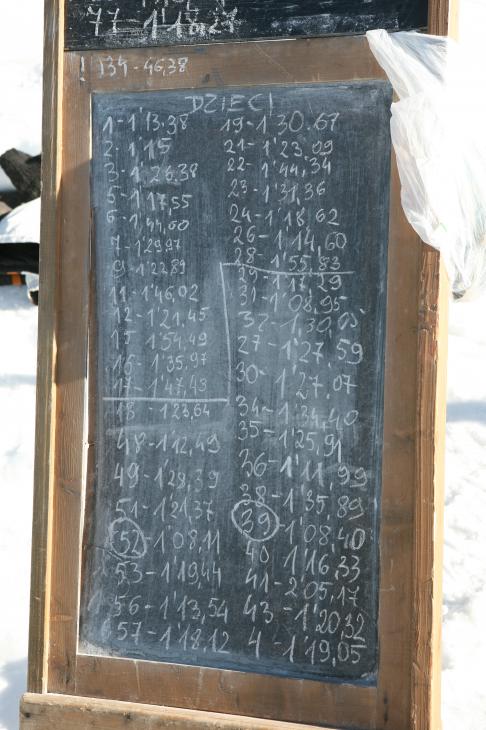 77-1'18,27
! 134-46,38
DZIECI
1-1'13.38
2-1'15
3-1'26,38
5-1'17,55
6-1'44,60
7-1'29,97
9-1'22,89
11-1'46,02
12-1'21,45
15-1'54,49
16-1'35,97
17-1'47,43
18-1'23,64
48-1'12,49
49-1'28,39
51-1'21,37
52-1'08,11
53-1'19,44
56-1'13,54
57-1'18,12
19-1'30.67
21-1'23,09
22-1'44,34
23-1'31,36
24-1'18,62
26-1'14,60
28-1'55,83
29-1'17,29
31-1'08,95
32-1'30,05
27-1'27,59
30-1'27,07
34-1'34,40
35-1'25,91
36-1'11,99
38-1'35,89
39-1'08,40
40-1'16,33
41-2'05,17
43-1'20,32
4-1'19,05